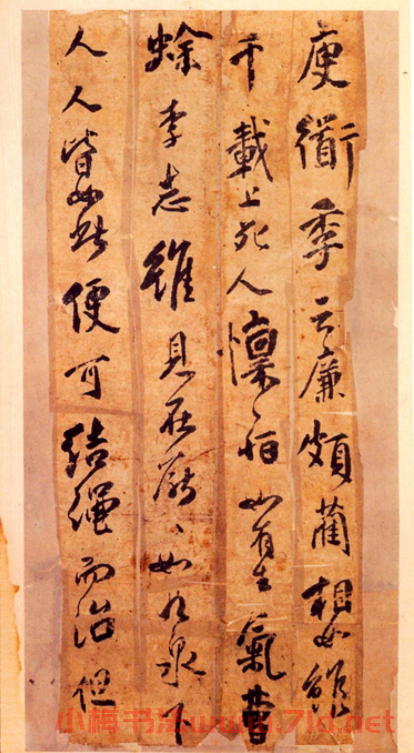 庾衜季云廉頗藺相如雖
千載上死人懍〻恒如有生氣曹
蜍李志雖見在厭〻如九泉下
人人皆如此便可結繩而治但
小梅书法